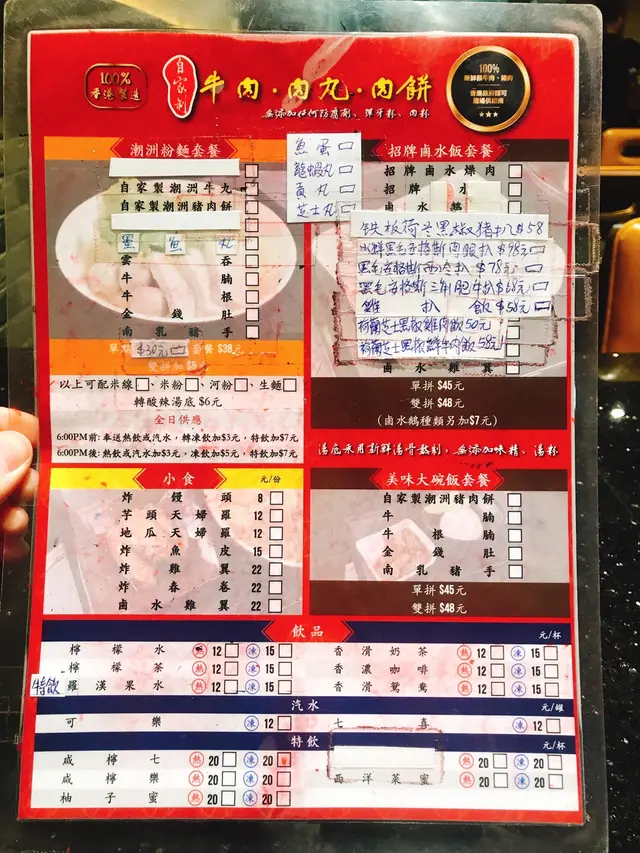 100%
香港製造
自家制
牛肉·肉丸·肉餅
無添加任何防腐劑、彈牙粉、肉粉
100%
香港政府認可
★★★
潮洲粉麵套餐
自家製潮洲牛丸
自家製潮洲豬肉餅
墨魚丸
雲吞
牛腩
牛根
金錢肚
南乳豬手
單 $30元 套餐 $38元
雙拼加$5
以上可配米線、米粉、河粉、生麵
轉酸辣湯底 $6元
全日供應
6:00PM前: 奉送熱飲或汽水，轉凍飲加$3元，特飲加$7元
6:00PM後: 熱飲或汽水加$3元，凍飲加$5元，特飲加$7元
魚蛋
龍蝦丸
貢丸
芝士丸
招牌鹵水飯套餐
招牌鹵水燥肉
招牌 水
鹵水鵝
鐵板荷蘭黑椒豬扒$58
$98元
$78元
$68元
雞扒飯$58元
荷蘭芝士黑椒雞肉飯50元
荷蘭芝士黑椒鮮牛肉飯58元
鹵水雞翼
單拼 $45元
雙拼 $48元
(鹵水鵝種類另加$7元)
湯底采用新鮮湯骨熬制，無添加味精、湯粉
小食 元/份
炸饅頭 8
芋頭天婦羅 12
地瓜天婦羅 12
炸魚皮 15
炸雞翼 22
炸春卷 22
鹵水雞翼 22
美味大碗飯套餐
自家製潮洲豬肉餅
牛腩
牛根腩
金錢肚
南乳豬手
單拼 $45元
雙拼 $48元
飲品 元/杯
檸檬水 熱 12 凍 15
檸檬茶 熱 12 凍 15
特飲 羅漢果水 熱 12 凍 15
香滑奶茶 熱 12 凍 15
香濃咖啡 熱 12 凍 15
香滑鴛鴦 熱 12 凍 15
汽水 元/罐
可樂 凍 12
七喜 凍 12
特飲 元/杯
咸檸七 熱 20 凍 20
咸檸樂 熱 20 凍 20
柚子蜜 熱 20 凍 20
熱 20 凍 20
西洋菜蜜 熱 20 凍 20